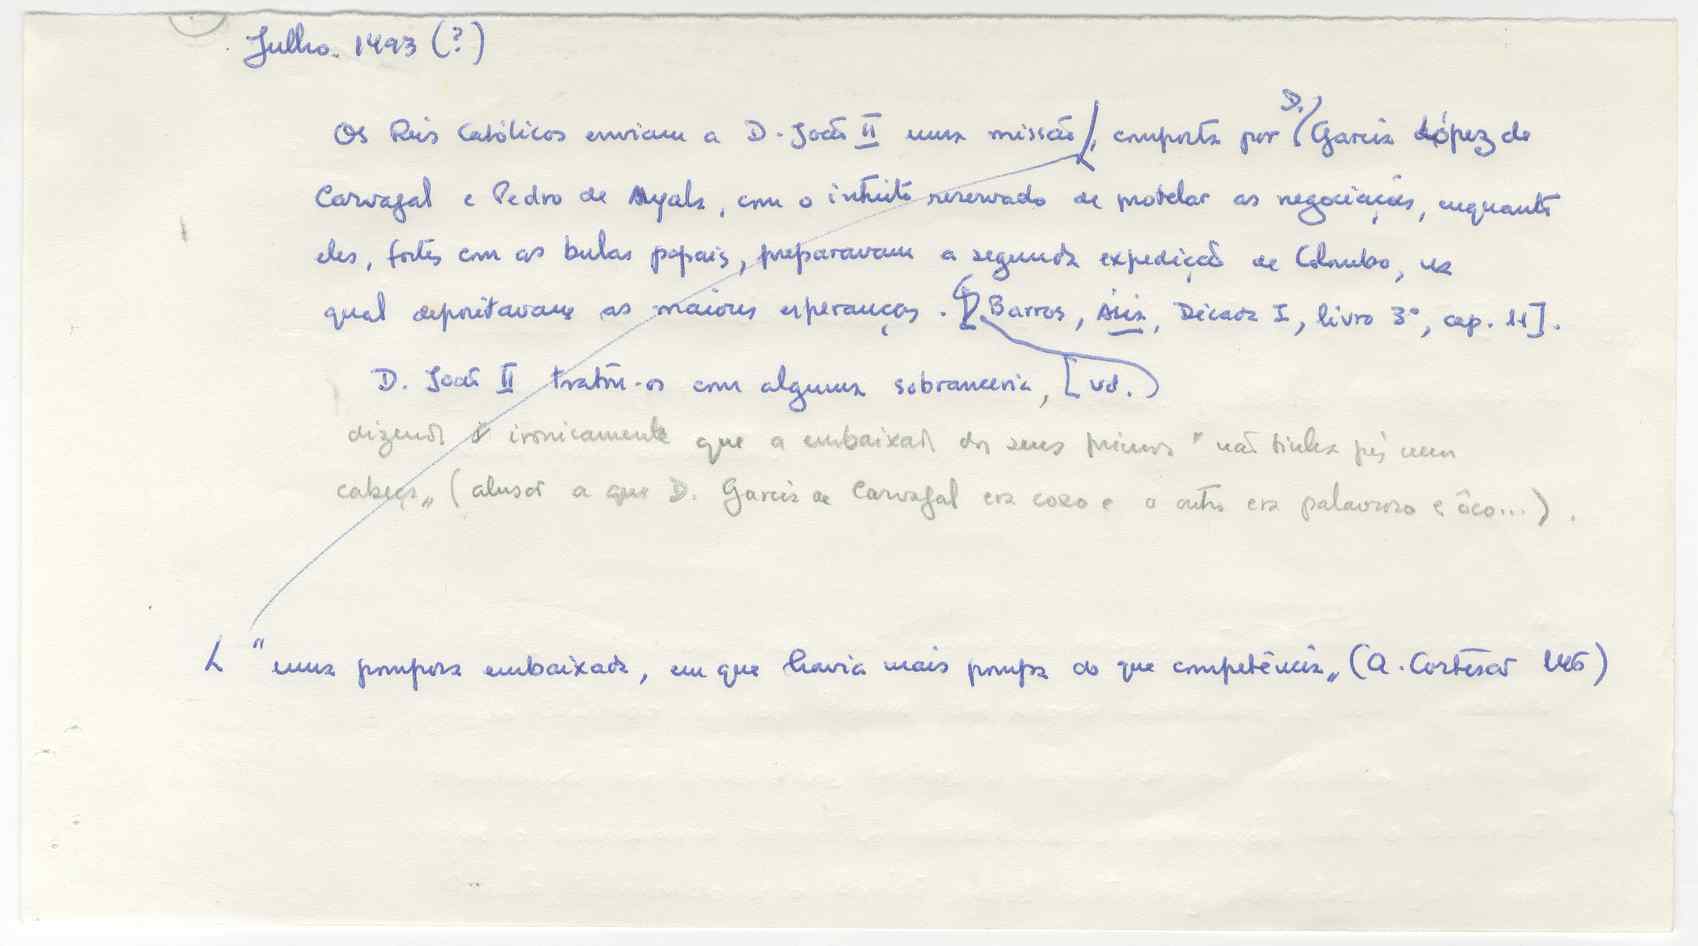 Julho. 1493 (?)
D.
Os Reis Católicos enviam a D. João II uma missão, composta por Garcia López de
Carvajal e Pedro de Ayala, com o intuito reservado de protelar as negociações, enquanto
eles, fortes com as bulas papais, preparavam a segunda expedição de Colombo, na
qual depositavam as maiores esperanças. [Barros, Ásia, Década I, livro 3º, cap. 11].
D. João II tratou-os com alguma sobranceria, [vd.)
dizendo ironicamente que a embaixada dos seus primos "não tinha pés nem
cabeça" (alusão a que D. Garcia de Carvajal era coxo e o outro era palavroso e ôco...).
"uma pomposa embaixada, em que havia mais pompa do que competência" (A. Cortesão